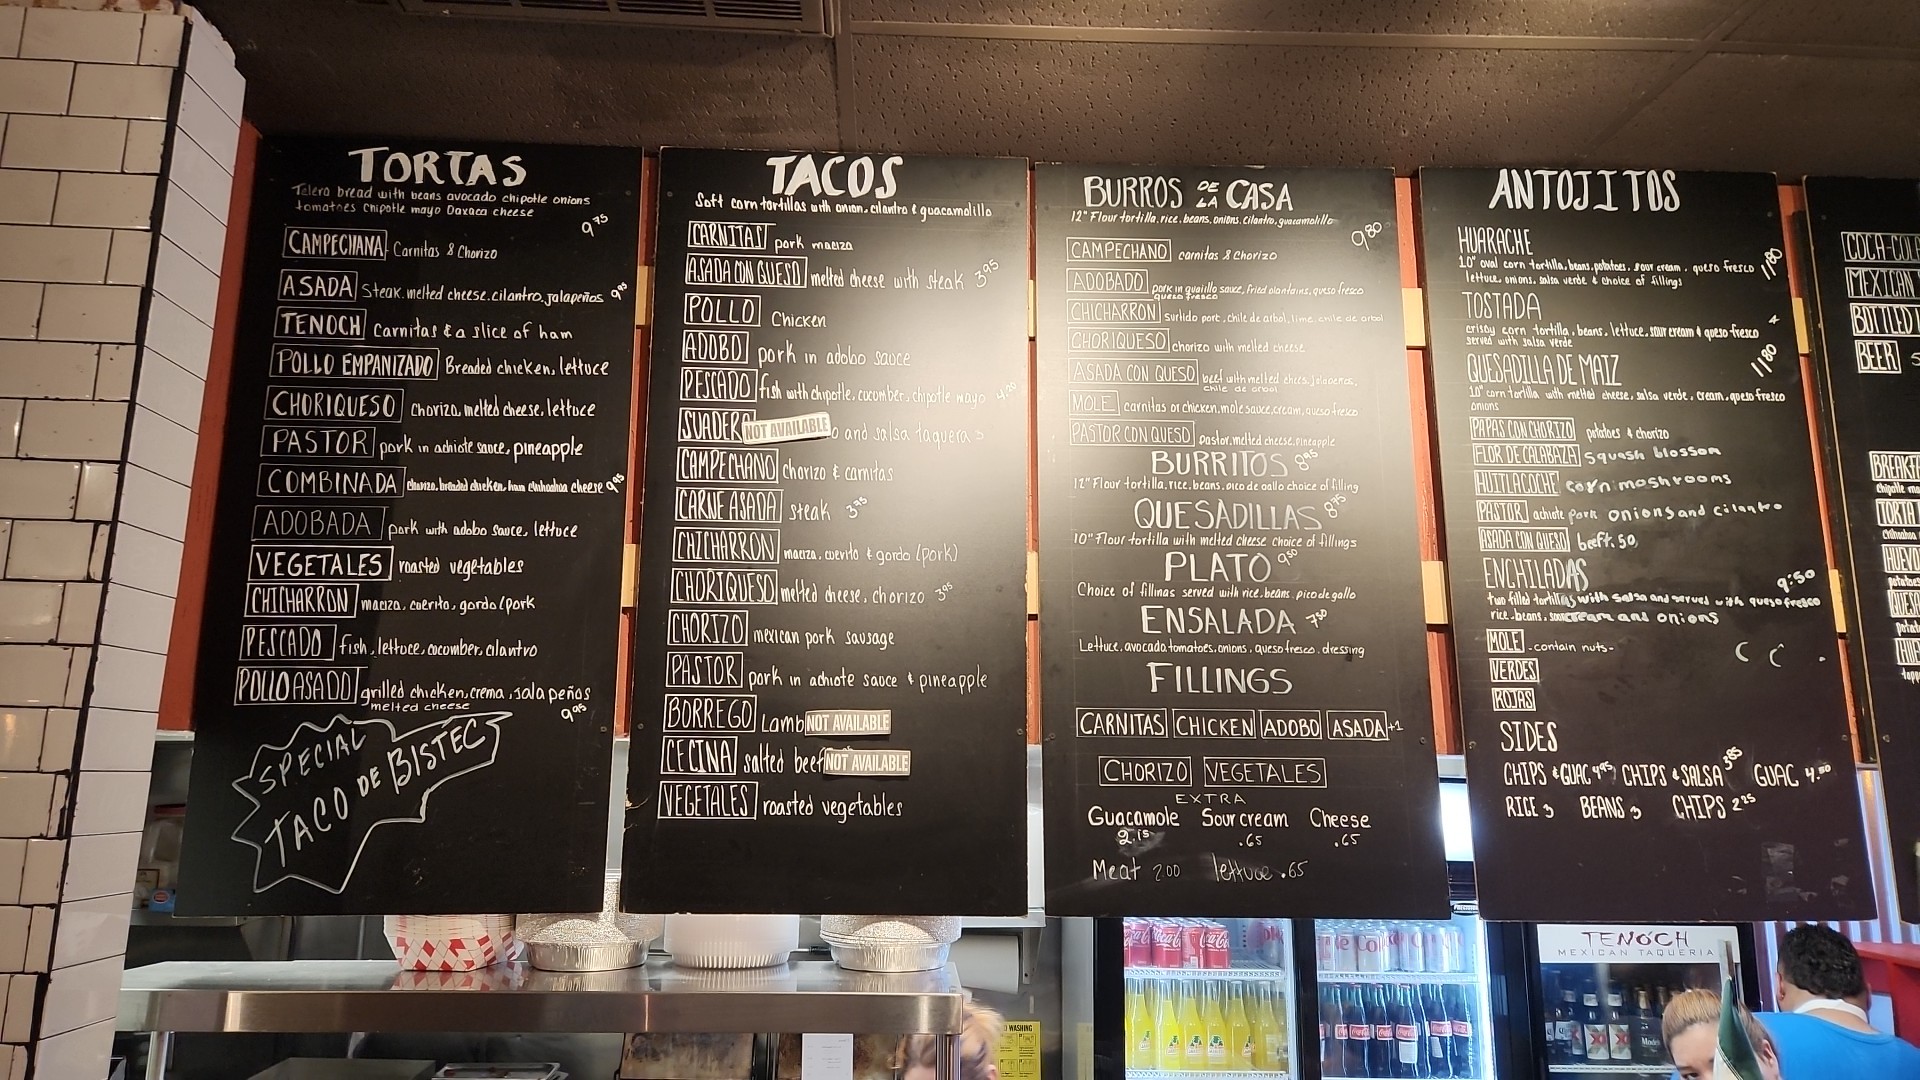 TORTAS
Telera bread with beans avocado chipotle onions
tomatoes chipotle mayo Oaxaca cheese
9.75
CAMPECHANA - Carnitas & Chorizo
ASADA Steak. melted cheese. cilantro. jalapeños 9.95
TENOCH Carnitas & a slice of ham
POLLO EMPANIZADO Breaded chicken, lettuce
CHORIQUESO chorizo, melted cheese, lettuce
PASTOR pork in achiote sauce, pineapple
COMBINADA chorizo, breaded chicken, ham chihuahua cheese 9.95
ADOBADA pork with adobo sauce, lettuce
VEGETALES roasted vegetables
CHICHARRON maciza, cuerito, gordo/pork
PESCADO fish, lettuce, cucumber, cilantro
POLLO ASADO grilled chicken, crema, jalapeños
melted cheese 9.95
SPECIAL
TACO DE BISTEC
TACOS
Soft corn tortillas with onion, cilantro & guacamolillo
CARNITAS pork maciza
ASADA CON QUESO melted cheese with steak 3.95
POLLO Chicken
ADOBO pork in adobo sauce
PESCADO fish with chipotle, cucumber, chipotle mayo 4.20
SUADERO NOT AVAILABLE and salsa taquera
CAMPECHANO chorizo & carnitas
CARNE ASADA steak 3.75
CHICHARRON maciza, cuerito & gordo (pork)
CHORIQUESO melted cheese, chorizo 3.95
CHORIZO mexican pork sausage
PASTOR pork in achiote sauce & pineapple
BORREGO Lamb NOT AVAILABLE
CECINA salted beef NOT AVAILABLE
VEGETALES roasted vegetables
BURROS DE LA CASA
12" Flour tortilla, rice, beans, onions, cilantro, guacamolillo
9.80
CAMPECHANO carnitas & Chorizo
ADOBADO pork in guajillo sauce, fried plantains, queso fresco
queso fresco
CHICHARRON surtido pork, chile de arbol, lime, chile de arbol
CHORIQUESO chorizo with melted cheese
ASADA CON QUESO beef with melted chees, jalapeños,
chile de arbol
MOLE carnitas or chicken, mole sauce, cream, queso fresco
PASTOR CON QUESO pastor, melted cheese, pineapple
BURRITOS 8.95
12" Flour tortilla, rice, beans, pico de gallo choice of filling
QUESADILLAS 8.75
10" Flour tortilla with melted cheese choice of fillings
PLATO 9.50
Choice of fillings served with rice, beans, pico de gallo
ENSALADA 7.50
Lettuce, avocado, tomatoes, onions, queso fresco, dressing
FILLINGS
CARNITAS CHICKEN ADOBO ASADA +1
CHORIZO VEGETALES
EXTRA
Guacamole Sour cream Cheese
2.15 .65 .65
Meat 2.00 lettuce .65
ANTOJITOS
HUARACHE
10" oval corn tortilla, beans, potatoes, sour cream, queso fresco 11.80
lettuce, onions, salsa verde & choice of fillings
TOSTADA
crispy corn tortilla, beans, lettuce, sour cream & queso fresco 4
served with salsa verde
QUESADILLA DE MAIZ 11.80
10" corn tortilla with melted cheese, salsa verde, cream, queso fresco
onions
PAPAS CON CHORIZO potatoes & chorizo
FLOR DE CALABAZA squash blossom
HUITLACOCHE corn moshrooms
PASTOR achiote pork onions and cilantro
ASADA CON QUESO beef
ENCHILADAS 9.50
two filled tortillas with salsa and served with queso fresco
rice, beans, sour cream and onions
MOLE - contain nuts -
VERDES
ROJAS
SIDES
CHIPS & GUAC 4.95 CHIPS & SALSA 3.85 GUAC 4.50
RICE 3 BEANS 3 CHIPS 2.25
COCA-COLA
MEXICAN
BOTTLED
BEER
TORTA
HUEVO
TENOCH
MEXICAN TAQUERIA
Coca-Cola
WASHING